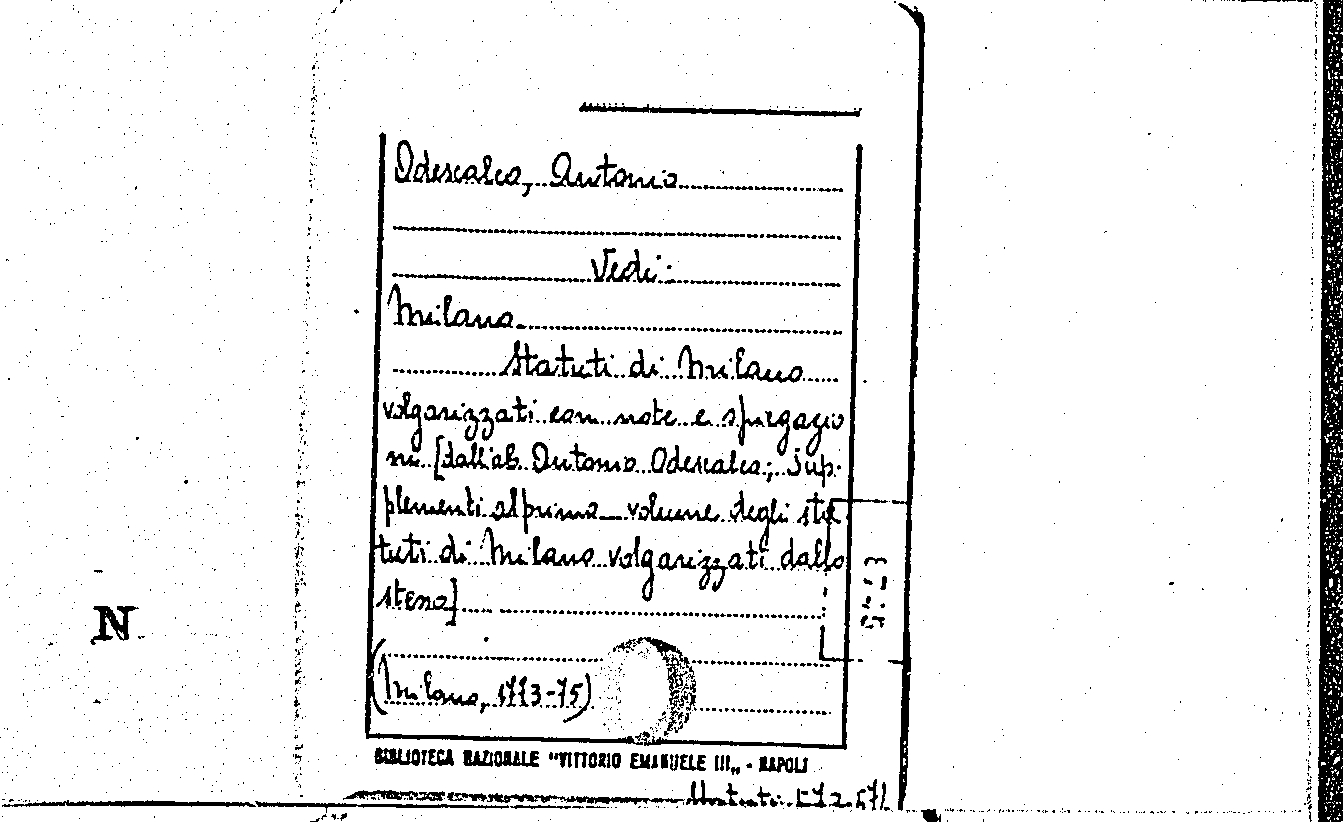 Odescalco, Antonio
Vedi:
Milano
Statuti di Milano
volgarizzati con note e spiegazio
ni [dall'ab. Antonio Odescalco; Sup-
plementi al primo volume degli sta
tuti di Milano volgarizzati dallo
stesso]
(Milano, 1773-75)
N
BIBLIOTECA NAZIONALE "VITTORIO EMANUELE III„ - NAPOLI